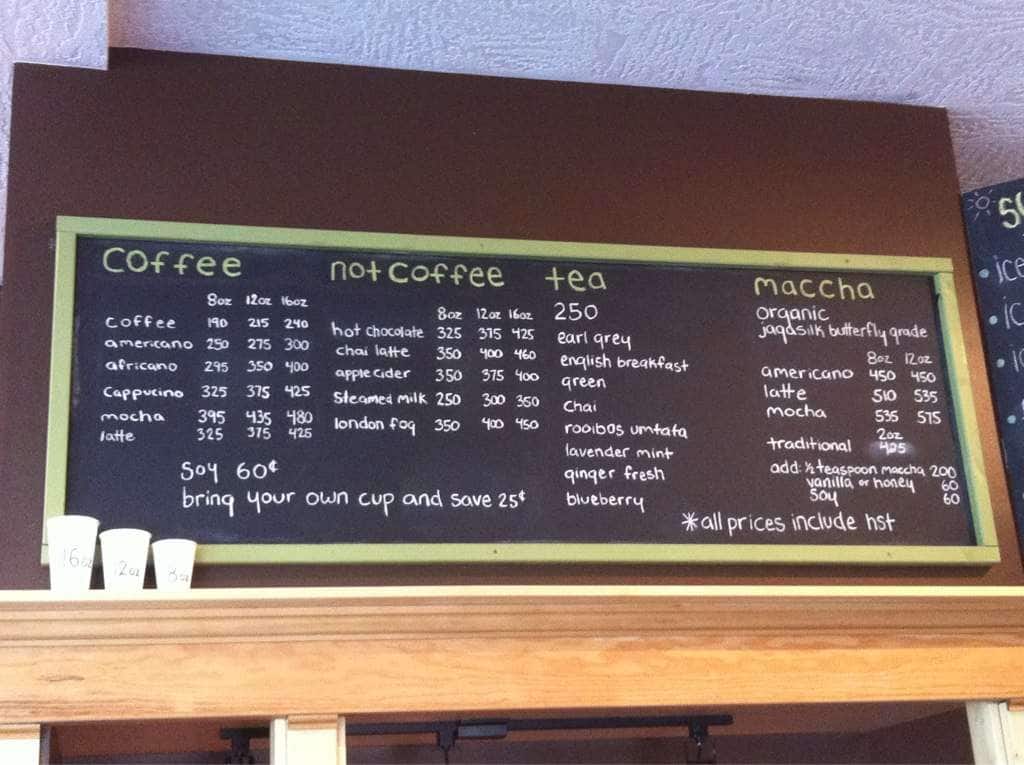 coffee
8oz 12oz 16oz
coffee 190 215 240
americano 250 275 300
africano 295 350 400
cappucino 325 375 425
mocha 395 435 480
latte 325 375 425
soy 60¢
bring your own cup and save 25¢
not coffee
8oz 12oz 16oz
hot chocolate 325 375 425
chai latte 350 400 460
apple cider 350 375 400
steamed milk 250 300 350
london fog 350 400 450
tea
250
earl grey
english breakfast
green
chai
rooibos umtata
lavender mint
ginger fresh
blueberry
maccha
organic
jagasilk butterfly grade
8oz 12oz
americano 450 450
latte 510 535
mocha 535 575
2oz
traditional 425
add: ½ teaspoon maccha 200
vanilla or honey 60
soy 60
*all prices include hst
16oz
12oz
8oz